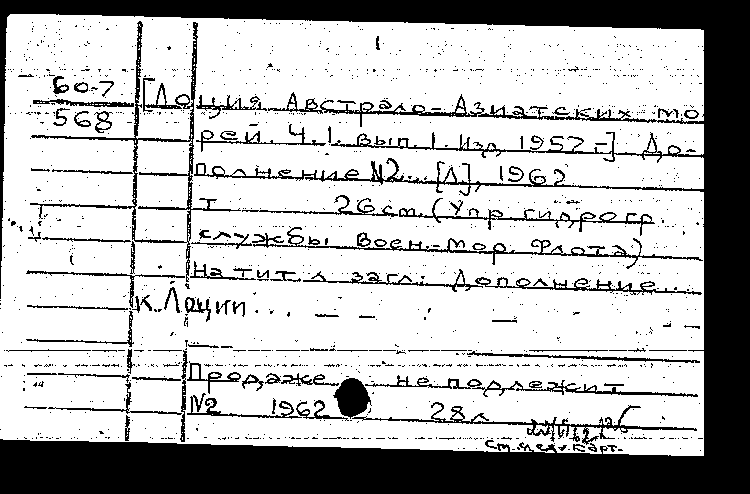 1
60-7
568
[Лоция Австрало-Азиатских мо
рей. Ч.1. вып. 1. Изд. 1957 г.] До-
полнение №2... [Л], 1962
т 26 см. (Упр. гидрогр.
службы Воен.-Мор. Флота)
На тит. л. загл.: Дополнение...
к Лоции...
Продаже не подлежит
№2 1962 28 л
см. след. карт.